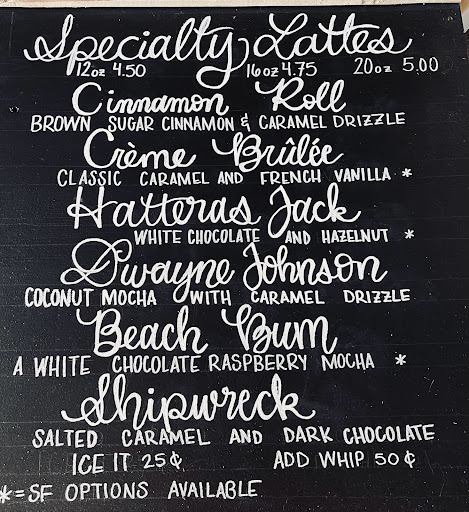 Specialty Lattes
12oz 4.50 16oz 4.75 20oz 5.00
Cinnamon Roll
BROWN SUGAR CINNAMON & CARAMEL DRIZZLE
Crème Brûlée
CLASSIC CARAMEL AND FRENCH VANILLA *
Hatteras Jack
WHITE CHOCOLATE AND HAZELNUT *
Dwayne Johnson
COCONUT MOCHA WITH CARAMEL DRIZZLE
Beach Bum
A WHITE CHOCOLATE RASPBERRY MOCHA *
Shipwreck
SALTED CARAMEL AND DARK CHOCOLATE
ICE IT 25¢ ADD WHIP 50¢
*=SF OPTIONS AVAILABLE